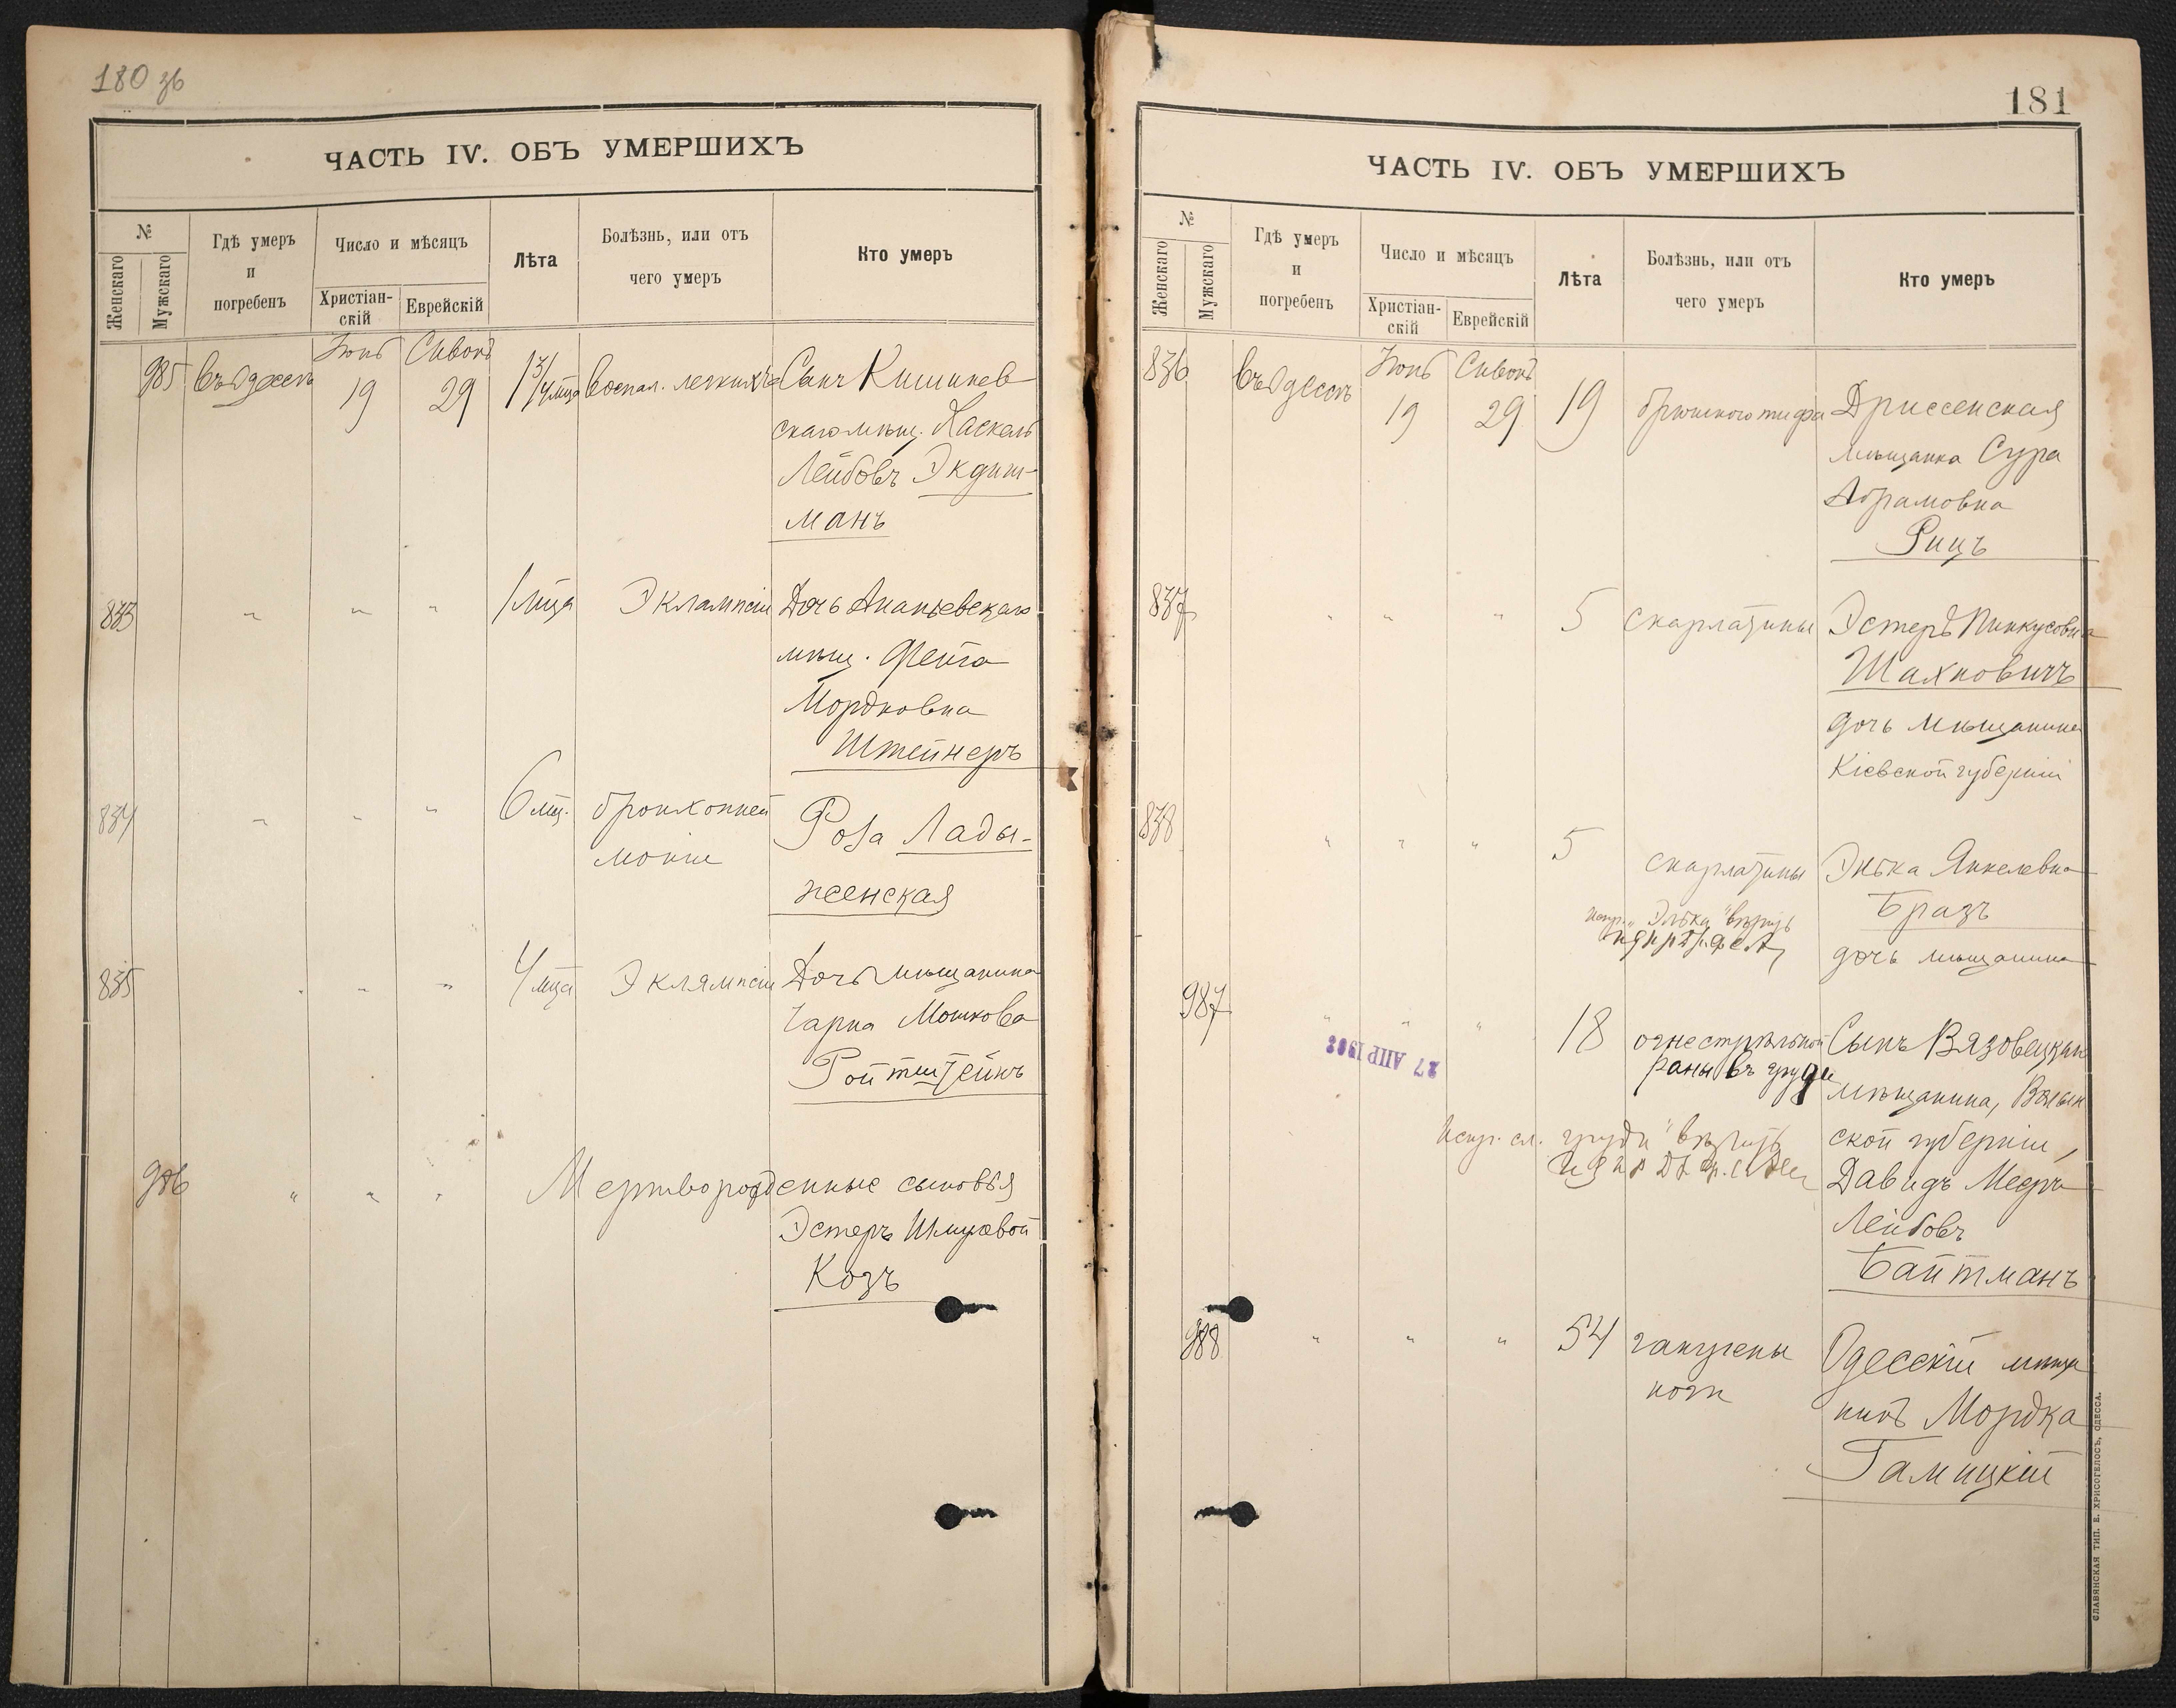 180 зв
ЧАСТЬ IV. ОБЪ УМЕРШИХЪ
№
Женскаго
Мужскаго
Гдѣ умеръ
и
погребенъ
Число и мѣсяцъ
Христіан-
скій
Еврейскій
Лѣта
Болѣзнь, или отъ
чего умеръ
Кто умеръ
Іюнь Сивонъ
985 въ Одессѣ 19 29 1 3/4 мца воспал. легкихъ Сынъ Кишинев
скаго мѣщ. Хаскель
Лейбовъ Экдиш-
манъ
833 " " " 1 мца Эклампсіи Дочь Ананьевскаго
мѣщ. Фейга
Мордковна
Штейнеръ
834 " " " 6 мц. бронхопнев
моніи
Роза Лады-
женская
835 " " " 4 мца Эклямпсіи Дочь мѣщанина
Чарна Мошкова
Ройтштейнъ
986 " " " Мертворожденные сыновья
Эстеръ Шмулевой
Козъ
181
ЧАСТЬ IV. ОБЪ УМЕРШИХЪ
№
Женскаго
Мужскаго
Гдѣ умеръ
и
погребенъ
Число и мѣсяцъ
Христіан-
скій
Еврейскій
Лѣта
Болѣзнь, или отъ
чего умеръ
Кто умеръ
Іюнь Сивонъ
836 въ Одессѣ 19 29 19 брюшного тифа Дриссенская
мѣщанка Сура
Абрамовна
Рицъ
837 " " " 5 скарлатины Эстеръ Пинкусовна
Шахновичъ
дочь мѣщанина
Кіевской губерніи
838 " " " 5 скарлатины Энька Янкелевна
Бразъ
дочь мѣщанина
987 " " " 18 огнестрѣльной
раны въ груди
Сынъ Вязовецкаго
мѣщанина, Волын
ской губерніи,
Давидъ Мееръ
Лейбовъ
Байтманъ
27 АПР 1902
Испр. сл. "груди" вѣрить
988 " " " 54 гангрены
ноги
Одесскій мѣща
нинъ Мордка
Галицкій
СЛАВЯНСКАЯ ТИП. Е. ХРИСОГЕЛОСЪ, ОДЕССА.